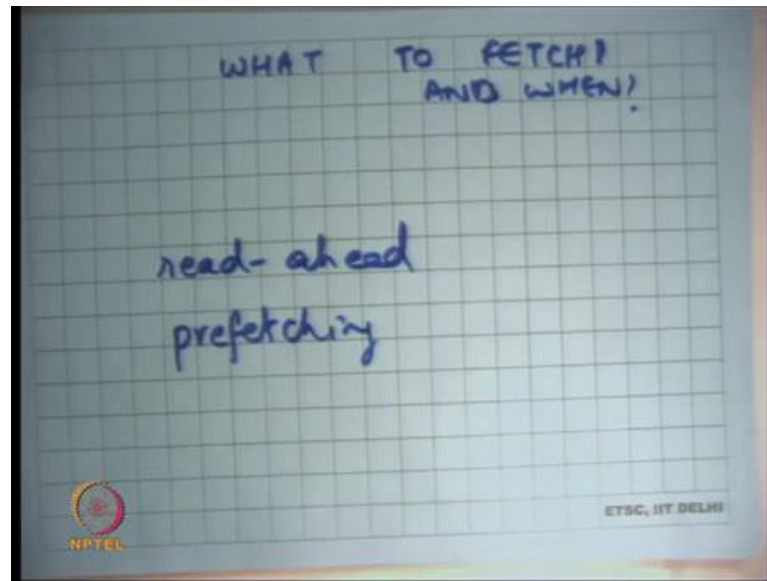 WHAT TO FETCH?
AND WHEN?
read-ahead
prefetching
NPTEL
ETSC, IIT DELHI